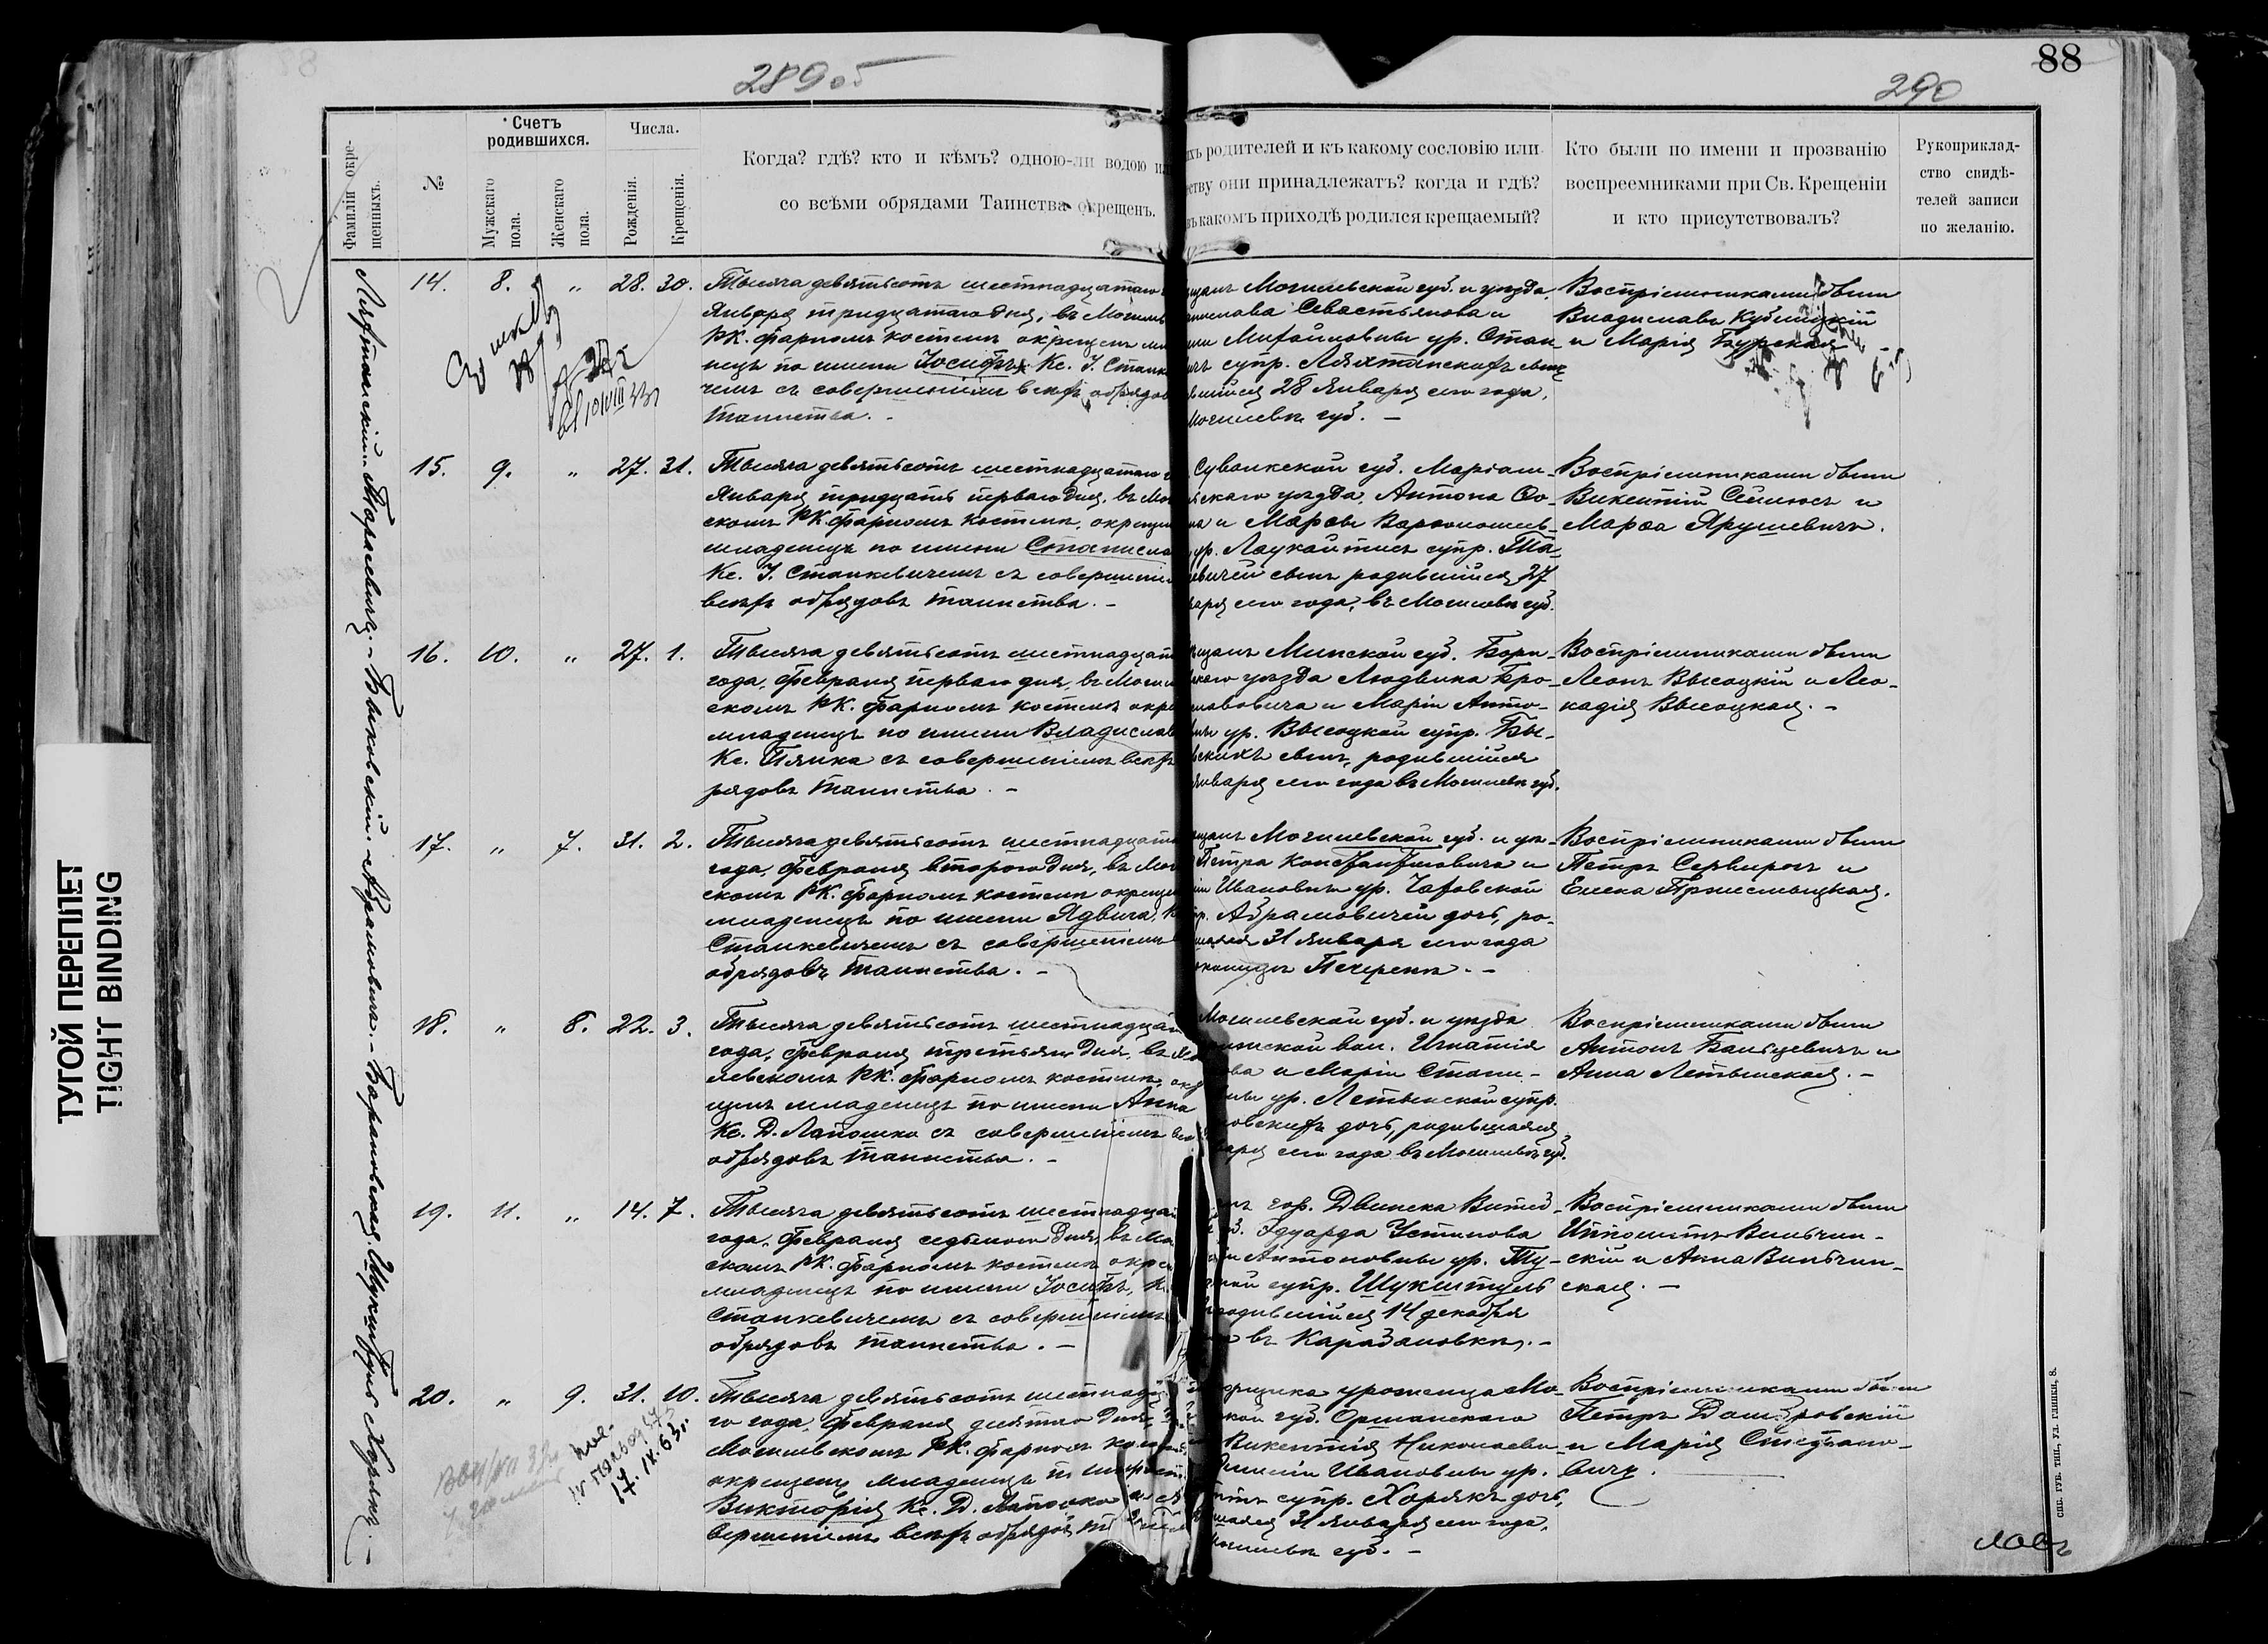 88
289об
290
ТУГОЙ ПЕРЕПЛЕТ
TIGHT BINDING
Фамиліи окре-
щенныхъ.
№
Счетъ
родившихся.
Мужскаго
пола.
Женскаго
пола.
Числа.
Рожденія.
Крещенія.
Когда? гдѣ? кто и кѣмъ? одною-ли водою или
со всѣми обрядами Таинства окрещенъ.
ихъ родителей и къ какому сословію или
ству они принадлежатъ? когда и гдѣ?
въ какомъ приходѣ родился крещаемый?
Кто были по имени и прозванію
воспреемниками при Св. Крещеніи
и кто присутствовалъ?
Рукоприклад-
ство свидѣ-
телей записи
по желанію.
14. 8. „ 28. 30.
Тысяча девятьсотъ шестнадцатаго
Января тридцатаго дня, въ Могилев
РК. фарномъ костелѣ окрещенъ мла
нецъ по имени Іосифъ Кс. І. Станке
чемъ съ совершеніемъ всѣхъ обрядов
таинства. -
щанъ Могилевской губ. и уѣзда,
нислава Севастьянова и
Михайловны ур. Стан
супр. Ляхтанскихъ сынъ
вшійся 28 Января сего года,
Могилевѣ губ. -
Воспріемниками были
Владиславъ Кублицкій
и Марія Бурская
15. 9. „ 27. 31.
Тысяча девятьсотъ шестнадцатаго
Января тридцать перваго дня, въ Мог
скомъ РК фарномъ костелѣ, окрещен
младенецъ по имени Станисла
Кс. І. Станкевичемъ съ совершеніе
всѣхъ обрядовъ таинства. -
Сувалкской губ. Маріам-
скаго уѣзда, Антона Ѳо-
на и Марѳы Варѳоломеев-
ур. Лаукайтисъ супр. Та-
севичей сынъ родившійся 27
варя сего года, въ Могилевѣ губ.
Воспріемниками были
Викентій и
Марѳа Ярушевичъ.
16. 10. „ 27. 1.
Тысяча девятьсотъ шестнадцат
года, февраля перваго дня, въ Могил
скомъ РК. фарномъ костелѣ окре
младенецъ по имени Владислав
Кс. съ совершеніемъ всѣхъ
рядовъ таинства. -
щанъ Минской губ. Бори-
скаго уѣзда Людвика Бро-
славовича и Маріи Анто-
ны ур. Высоцкой супр. Бы-
вскихъ сынъ, родившійся
января сего года въ Могилевѣ губ.
Воспріемниками были
Леонъ Высоцкій и Лео-
кадія Высоцкая. -
17. „ 7. 31. 2.
Тысяча девятьсотъ шестнадцат
года, февраля второго дня, въ Мог
скомъ РК. фарномъ костелѣ окреще
младенецъ по имени Ядвига,
Станкевичемъ съ совершеніемъ
обрядовъ таинства. -
щанъ Могилевской губ. и уѣ-
Петра Константиновича и
Ивановны ур. Чаховской
Абрамовичей дочь, ро-
шаяся 31 Января сего года
околицы Печерскъ. -
Воспріемниками были
Петръ и
Елена
18. „ 8. 22. 3.
Тысяча девятьсотъ шестнадцат
года, февраля третьяго дня, въ Мо
левскомъ РК. фарномъ костелѣ, окр
щенъ младенецъ по имени Анна
Кс. Д. Лапошко съ совершеніемъ всѣ
обрядовъ таинства. -
Могилевской губ. и уѣзда
вол. Игнатія
ова и Маріи Стани-
ны ур. Летынской супр.
новскихъ дочь, родившаяся
варя сего года въ Могилевѣ губ.
Воспріемниками были
Антонъ Бальцевичъ и
Анна Летынская. -
19. 11. „ 14. 7.
Тысяча девятьсотъ шестнадцат
года, февраля седьмого дня, въ Мог
скомъ РК. фарномъ костелѣ окре
младенецъ по имени Іосифъ, К
Станкевичемъ съ совершеніемъ
обрядовъ таинства. -
гор. Двинска Витеб-
Эдуарда Устинова
Антоновны ур. Ту-
супр. Шукштуль
родившійся 14 декабря
въ Карабановкѣ. -
Воспріемниками были
Ипполитъ Вильчин-
скій и Анна Вильчин-
ская. -
20. „ 9. 31. 10.
Тысяча девятьсотъ шестнадц
го года, февраля десятаго дня,
Могилевскомъ РК. фарномъ кост
окрещенъ младенецъ по имени
Викторія Кс. Д. Лапошко съ со
вершеніемъ всѣхъ обрядовъ
уроженца Мо-
ской губ. Оршанскаго
Викентія Николаеви
Ивановны ур.
супр. Хорякъ дочь,
шаяся 31 Января сего года,
Могилевѣ губ. -
Воспріемниками были
Петръ Домбровскій
и Марія Стефано-
вичъ.
17.IX.63г.
Ляхтанскій. Тарасевичъ. Быковскій. Абрамовичъ. Барановская, Шукштуль, Хорякъ. -
СПБ. ГУБ. ТИП., УЛ. ГЛИНКИ, 8.